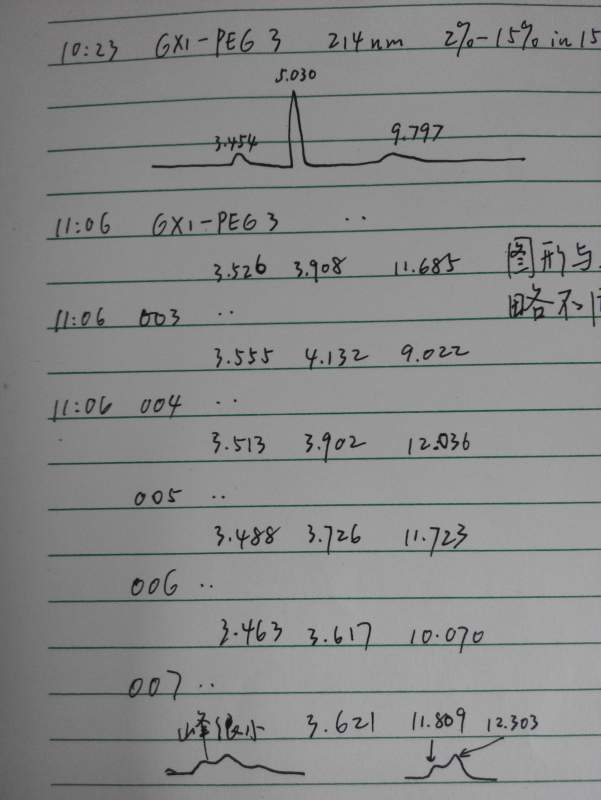 10:23 GX1-PEG3 214nm 2%-15% in 15
5.030
3.454 9.797
11:06 GX1-PEG3 ··
3.526 3.908 11.685 图形与
略不
11:06 003 ··
3.555 4.132 9.022
11:06 004 ··
3.513 3.902 12.036
005 ··
3.488 3.726 11.723
006 ··
3.463 3.617 10.070
007 ··
峰很小 3.621 11.809 12.303